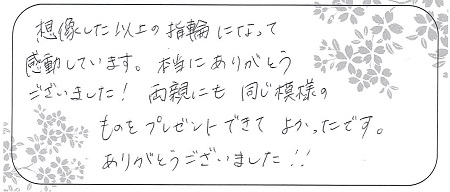 想像した以上の指輪になって
感動しています。本当にありがとう
ございました！ 両親にも同じ模様の
ものをプレゼントできてよかったです。
ありがとうございました！！